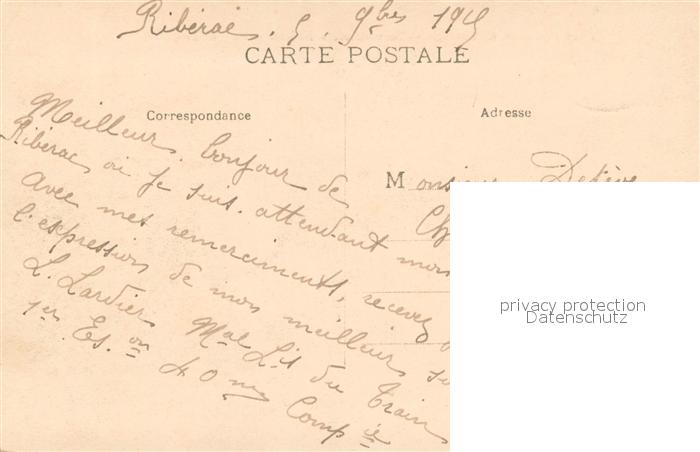 Ribérac. 5. 9bres 1915
CARTE POSTALE
Correspondance
Adresse
Meilleur bonjour de
Ribérac où je suis. attendant mon
Avec mes remerciments, recevez
l'expression de mon meilleur
L. Lardier Mal Lis du Train
1er Es.on 40me Compie
Monsieur
privacy protection
Datenschutz